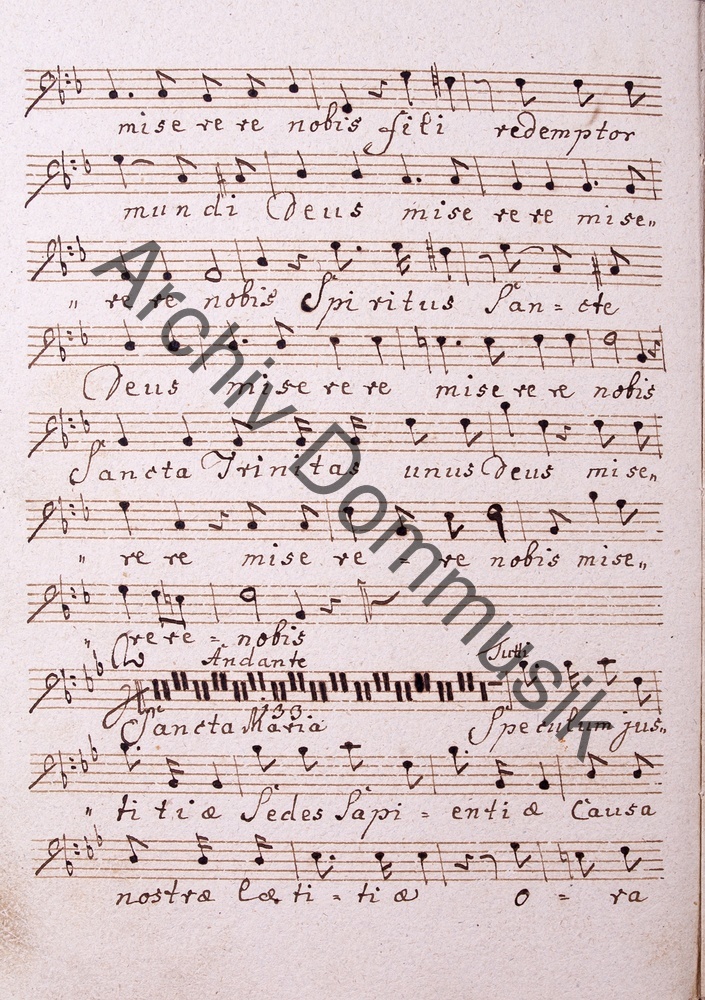 mise re re nobis fili redemptor
mundi Deus mise re re mise„
„ re re nobis Spi ritus San = cte
Deus mise re re mise re re nobis
Sancta Trinitas unus Deus mise„
„ re re mise re = re nobis mise„
„ re re = nobis
Andante Tutti
133
Sancta Maria Speculum jus„
„ ti tiæ Sedes Sapi = enti æ Causa
nostræ læ ti = ti æ o = ra
Archiv Dommusik